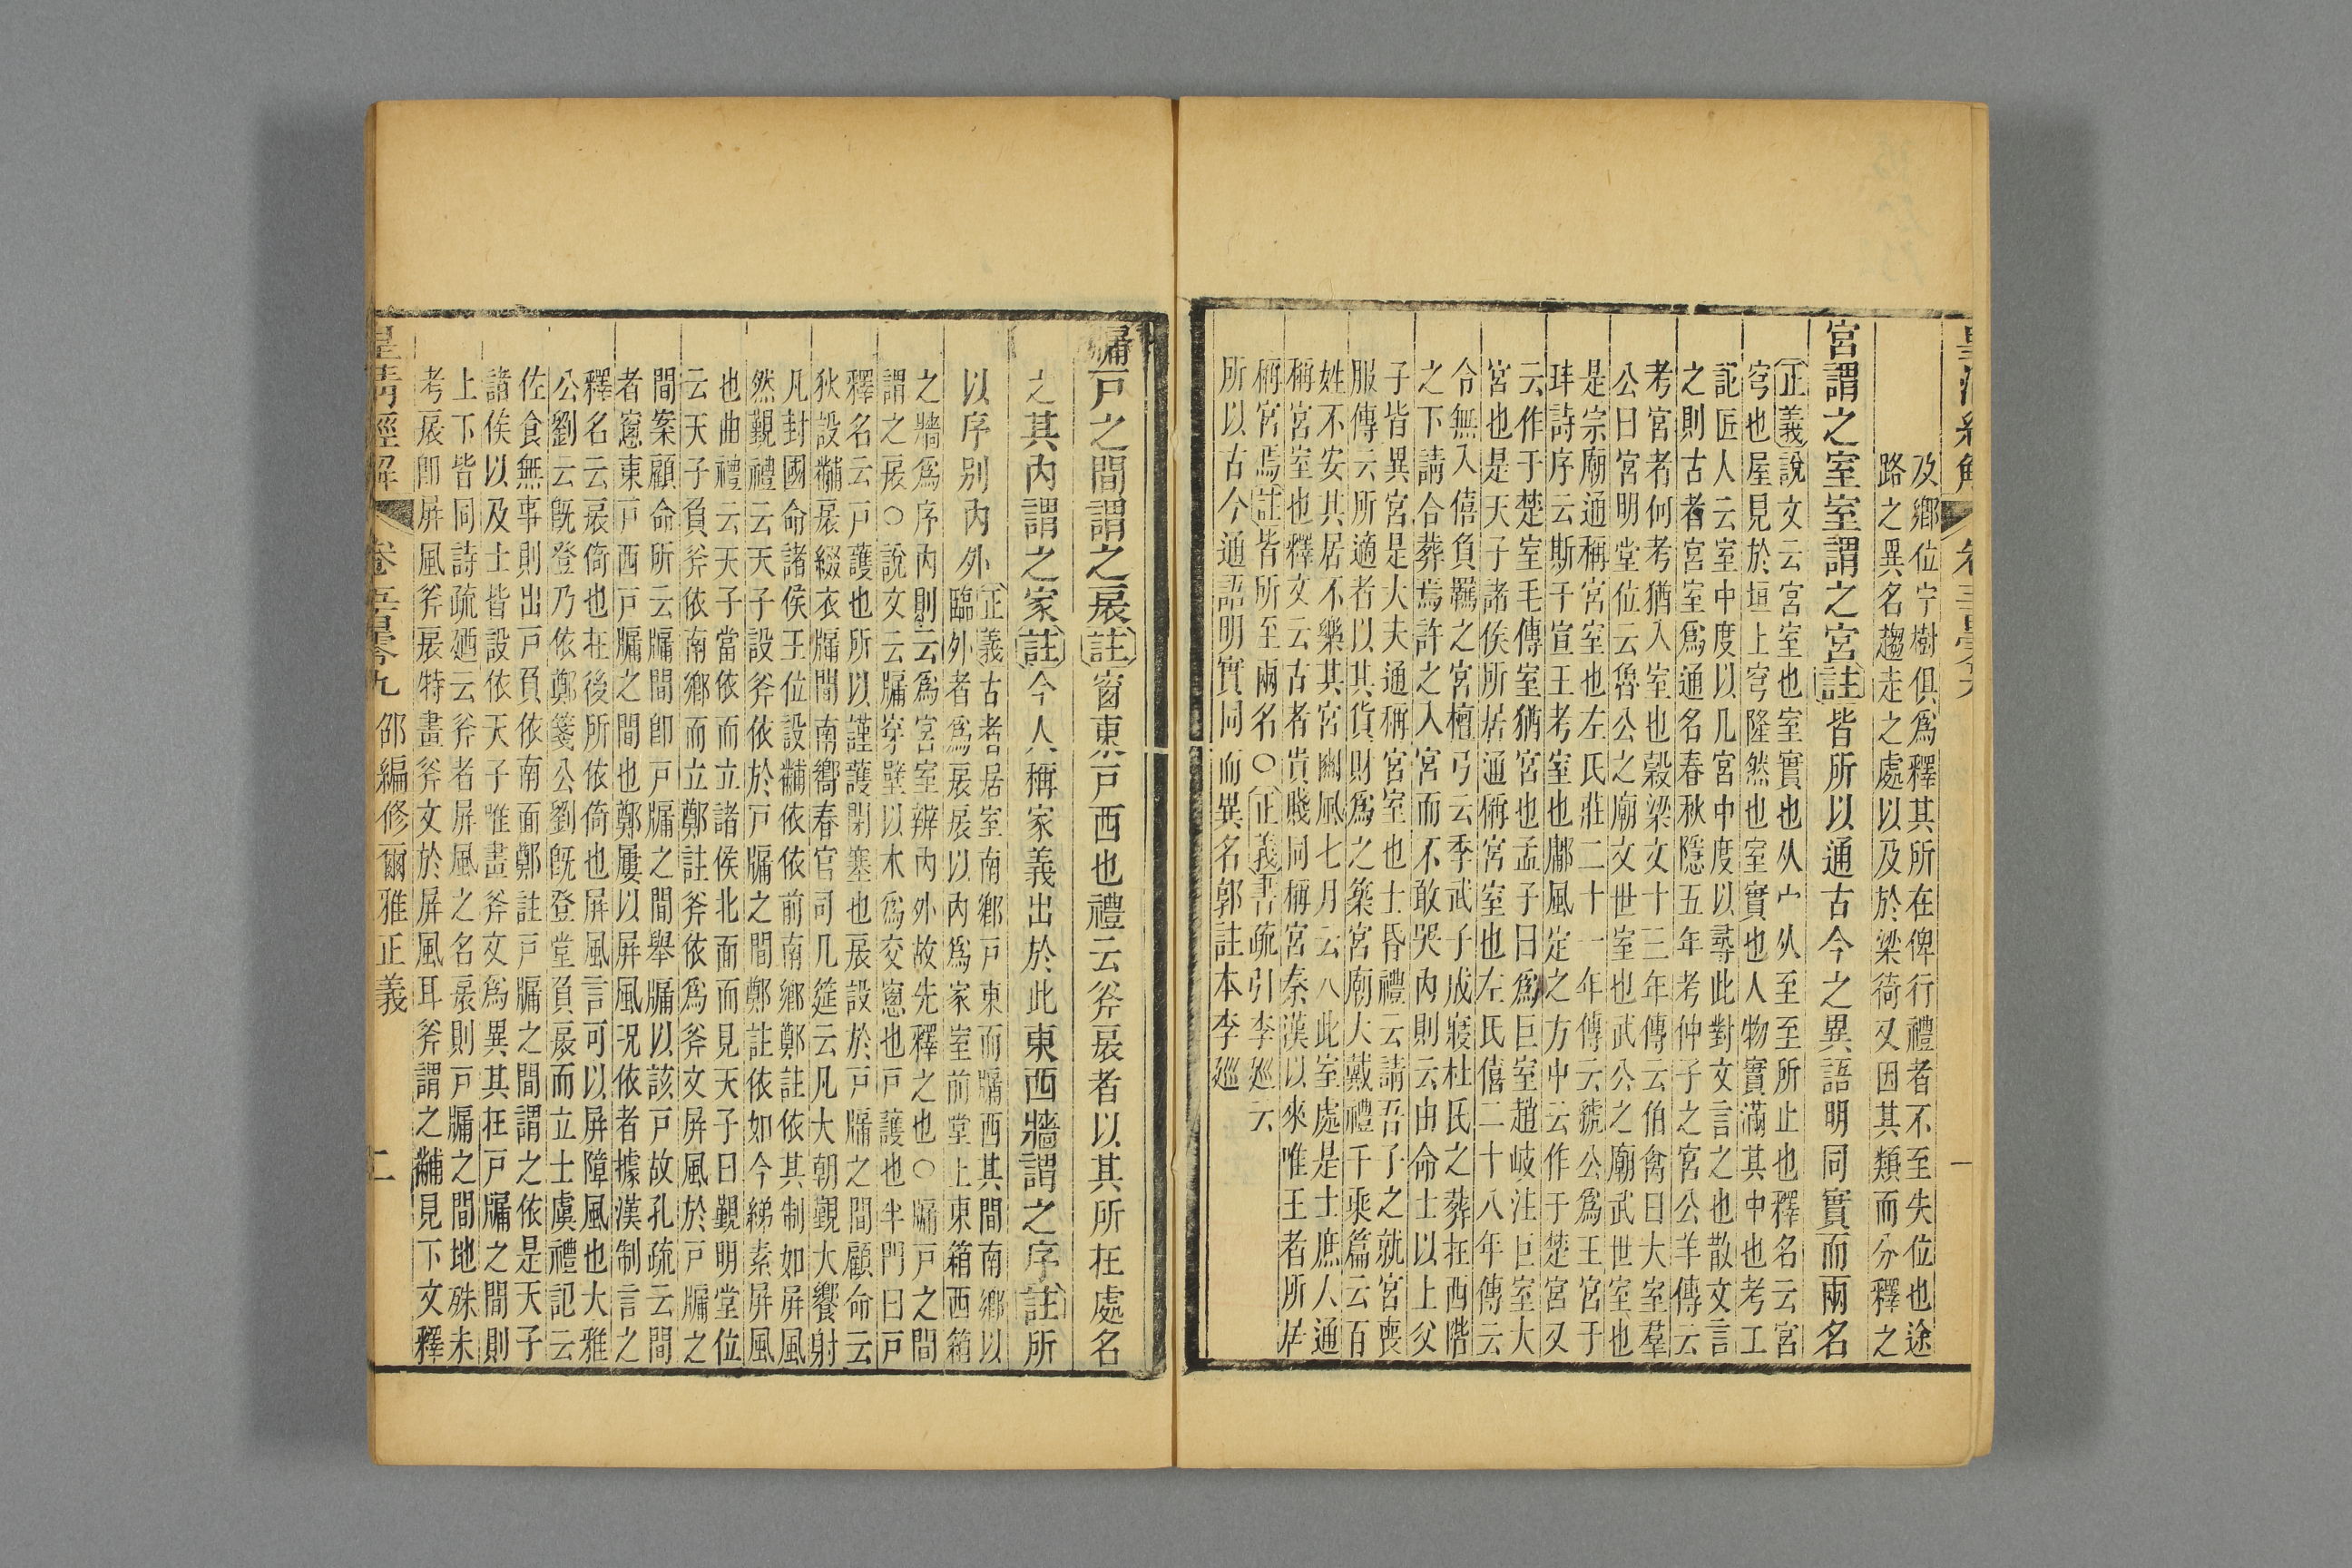 及鄉位宁樹俱爲釋其所在俾行禮者不至失位也途
路之異名趨走之處以及於梁徛又因其類而分釋之
宮謂之室室謂之宮註皆所以通古今之異語明同實而兩名
正義說文云宮室也室實也从宀从至至所止也釋名云宮
穹也屋見於垣上穹隆然也室實也人物實滿其中也考工
記匠人云室中度以几宮中度以尋此對文言之也散文言
之則古者宮室爲通名春秋隱五年考仲子之宮公羊傳云
考宮者何考猶入室也穀梁文十三年傳云伯禽曰大室羣
公曰宮明堂位云魯公之廟文世室也武公之廟武世室也
是宗廟通稱宮室也左氏莊二十一年傳云虢公爲王宮于
玤詩序云斯干宣王考室也鄘風定之方中云作于楚宮又
云作于楚室毛傳室猶宮也孟子曰爲巨室趙岐注巨室大
宮也是天子諸侯所居通稱宮室也左氏僖二十八年傳云
令無入僖負羈之宮檀弓云季武子成寢杜氏之葬在西階
之下請合葬焉許之入宮而不敢哭內則云由命士以上父
子皆異宮是大夫通稱宮室也士昏禮云請吾子之就宮喪
服傳云所適者以其貨財爲之築宮廟大戴禮千乘篇云百
姓不安其居不樂其宮豳風七月云八此室處是士庶人通
稱宮室也釋文云古者貴賤同稱宮秦漢以來唯王者所居
稱宮焉註皆所至兩名○正義書疏引李巡云
所以古今通語明實同而異名郭註本李巡
牖戶之間謂之扆註窗東戶西也禮云斧扆者以其所在處名
之其內謂之家註今人稱家義出於此東西牆謂之序註所
以序別內外正義古者居室南鄉戶東而牖西其間南鄉以
臨外者爲扆扆以內爲家室前堂上東箱西箱
之牆爲序內則云爲宮室辨內外故先釋之也○牖戶之間
謂之扆○說文云牖穿壁以木爲交窗也戶護也半門曰戶
釋名云戶護也所以謹護閉塞也扆設於戶牖之間顧命云
狄設黼扆綴衣牖間南嚮春官司几筵云凡大朝覲大饗射
凡封國命諸侯王位設黼依依前南鄉鄭註依其制如屏風
然覲禮云天子設斧依於戶牖之間鄭註依如今綈素屏風
也曲禮云天子當依而立諸侯北面而見天子曰覲明堂位
云天子負斧依南鄉而立鄭註斧依爲斧文屏風於戶牖之
間案顧命所云牖間卽戶牖之間舉牖以該戶故孔疏云間
者窗東戶西戶牖之間也鄭屢以屏風況依者據漢制言之
釋名云扆倚也在後所依倚也屏風言可以屏障風也大雅
公劉云既登乃依鄭箋公劉既登堂負扆而立士虞禮記云
佐食無事則出戶負依南面鄭註戶牖之間謂之依是天子
諸侯以及士皆設依天子唯畫斧文爲異其在戶牖之間則
上下皆同詩疏廼云斧者屏風之名扆則戶牖之間地殊未
考扆卽屏風斧扆特畫斧文於屏風耳斧謂之黼見下文釋
皇清經解 卷五百零九 邵編修爾雅正義 二